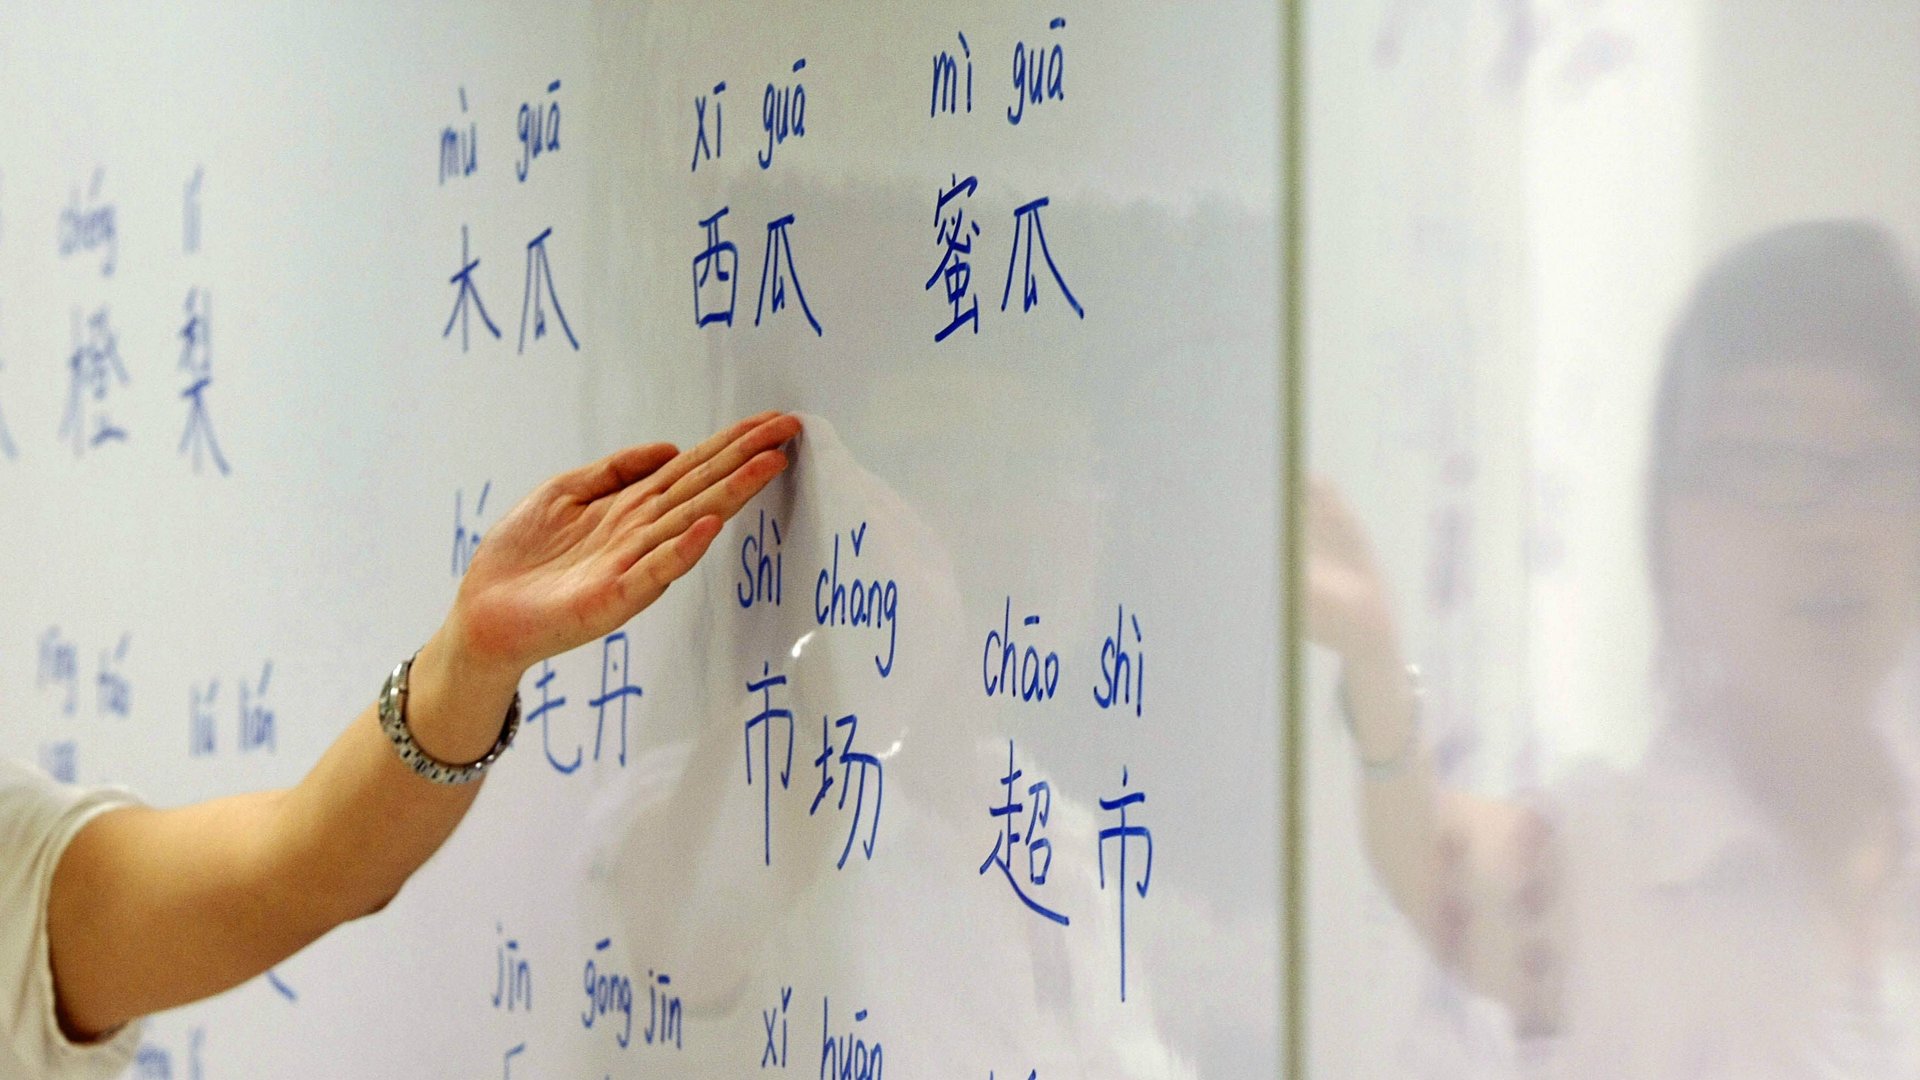 mù guā
xī guā
mì guā
chéng
lí
木瓜
西瓜
蜜瓜
橙
梨
shì chǎng
chāo shì
毛丹
liú lián
市场
超市
jīn
gōng jīn
xǐ huān